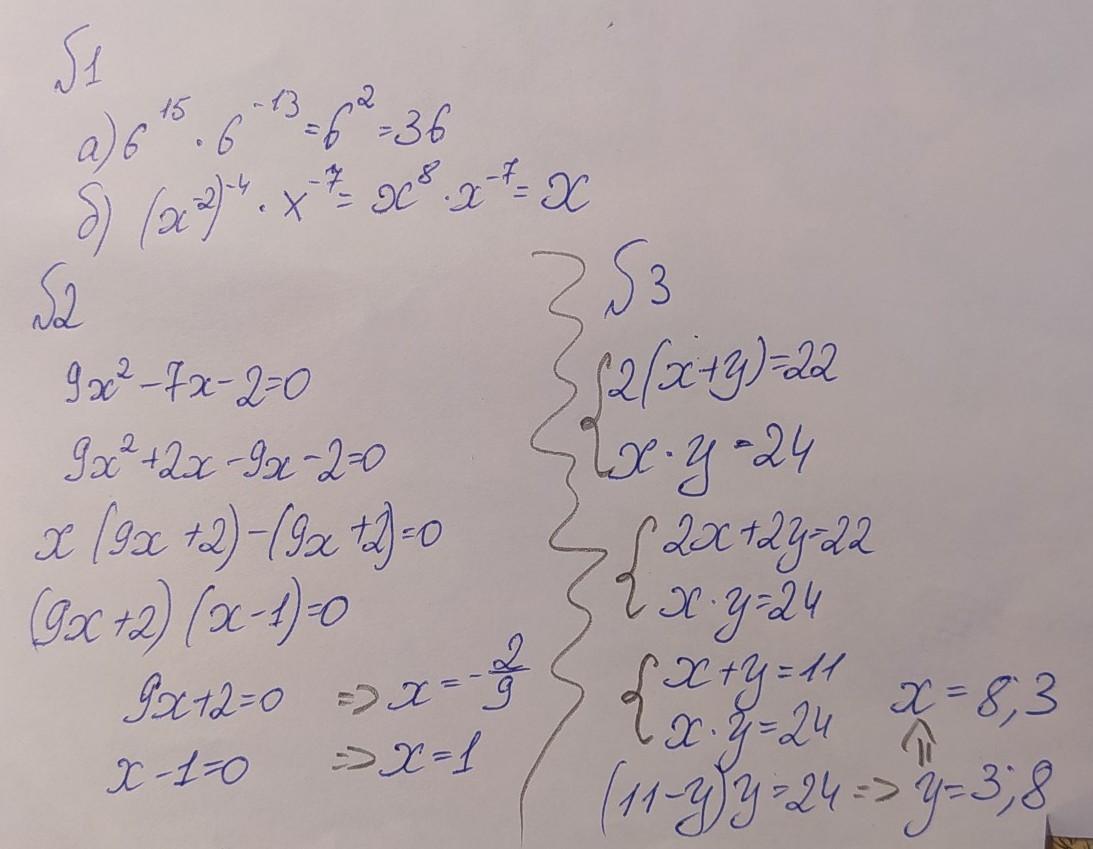 №1
а) 6^15 · 6^-13 = 6^2 = 36
б) (x^-2)^-4 · x^-7 = x^8 · x^-7 = x
№2
9x^2 - 7x - 2 = 0
9x^2 + 2x - 9x - 2 = 0
x (9x + 2) - (9x + 2) = 0
(9x + 2) (x - 1) = 0
9x + 2 = 0 => x = -2/9
x - 1 = 0 => x = 1
№3
{ 2(x + y) = 22
x · y = 24
{ 2x + 2y = 22
x · y = 24
{ x + y = 11
x · y = 24
(11 - y) y = 24 => y = 3; 8
⇑
x = 8; 3